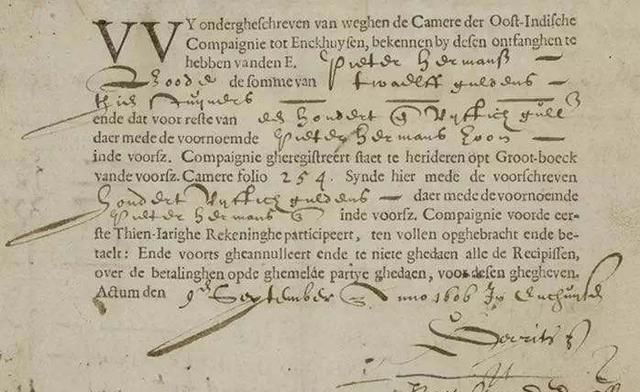 WY ondergheschreven van weghen de Camere der Oost-Indische
Compaignie tot Enckhuysen, bekennen by desen ontfanghen te
hebben vanden E. Pieter Hermansz
Boode de somme van twaelff guldens
thien stuyvers
ende dat voor reste van hondert vyftich gul
daer mede de voornoemde Pieter Hermans zoon
inde voorsz. Compaignie gheregistreert staet te herideren opt Groot-boeck
vande voorsz. Camere folio 254. Synde hier mede de voorschreven
hondert vyftich guldens daer mede de voornoemde
Pieter Hermans inde voorsz. Compaignie voorde eer-
ste Thien-Iarighe Rekeninghe participeert, ten vollen opghebracht ende be-
taelt: Ende voorts gheannulleert ende te niete ghedaen alle de Recipissen,
over de betalinghen opde ghemelde partye ghedaen, voor desen ghegheven.
Actum den 9 September Anno 1606